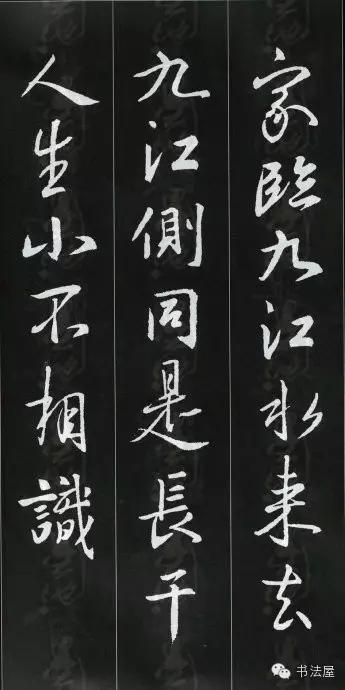 家臨九江水来去
九江側同是長干
人生小不相識
书法屋